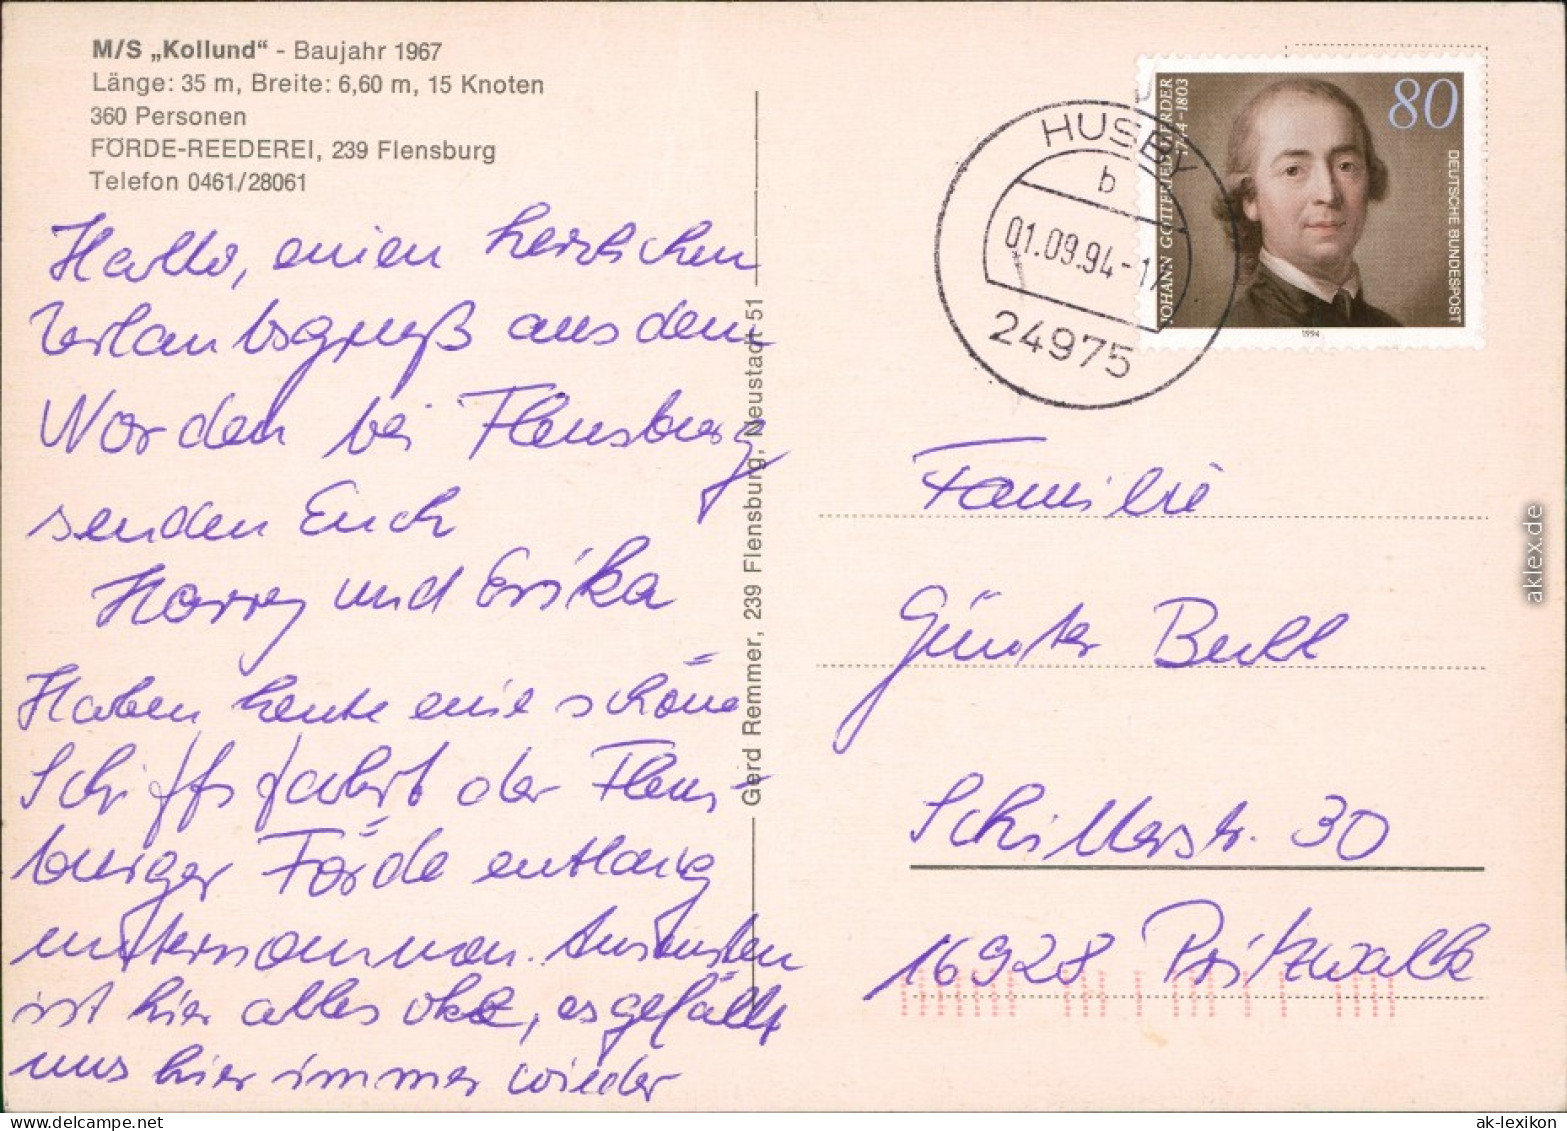 M/S „Kollund“ - Baujahr 1967
Länge: 35 m, Breite: 6,60 m, 15 Knoten
360 Personen
FÖRDE-REEDEREI, 239 Flensburg
Telefon 0461/28061
Hallo, einen herzlichen
Urlaubsgruß aus dem
Norden bei Flensburg
senden Euch
Harry und Erika
Haben heute eine schöne
Schiffsfahrt der Flens-
burger Förde entlang
unternommen. Ansonsten
ist hier alles oke, es gefällt
uns hier immer wieder
Gerd Remmer, 239 Flensburg, Neustadt 51
HUSBY
b
01.09.94-17
24975
JOHANN GOTTFRIED HERDER
1744-1803
80
DEUTSCHE BUNDESPOST
1994
Familie
Günter
Schillerstr. 30
16928 Pritzwalk
aklex.de
www.delcampe.net
ak-lexikon